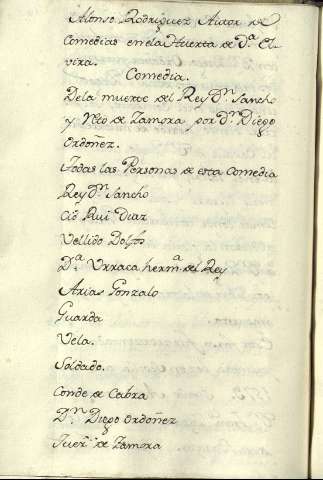 Alonso Rodriguez Autor de
Comedias en la Huerta de D.ª El-
vira.
Comedia.
De la muerte del Rey D.n Sancho
y Reto de Zamora, por D.n Diego
Ordoñez.
Todas las Personas de esta Comedia
Rey D.n Sancho
Cid Rui Diaz
Vellido Dolfos
D.ª Urraca herm.ª del Rey
Arias Gonzalo
Guarda
Vela.
Soldado.
Conde de Cabra
D.n Diego Ordoñez
de Zamora